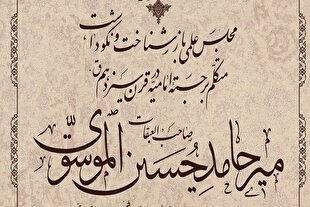 مجلس علمی بازشناخت و نکوداشت
متکلم برجسته امامیه در قرن سیزدهم ق.
صاحب العبقات
میر حامد حسین الموسوی